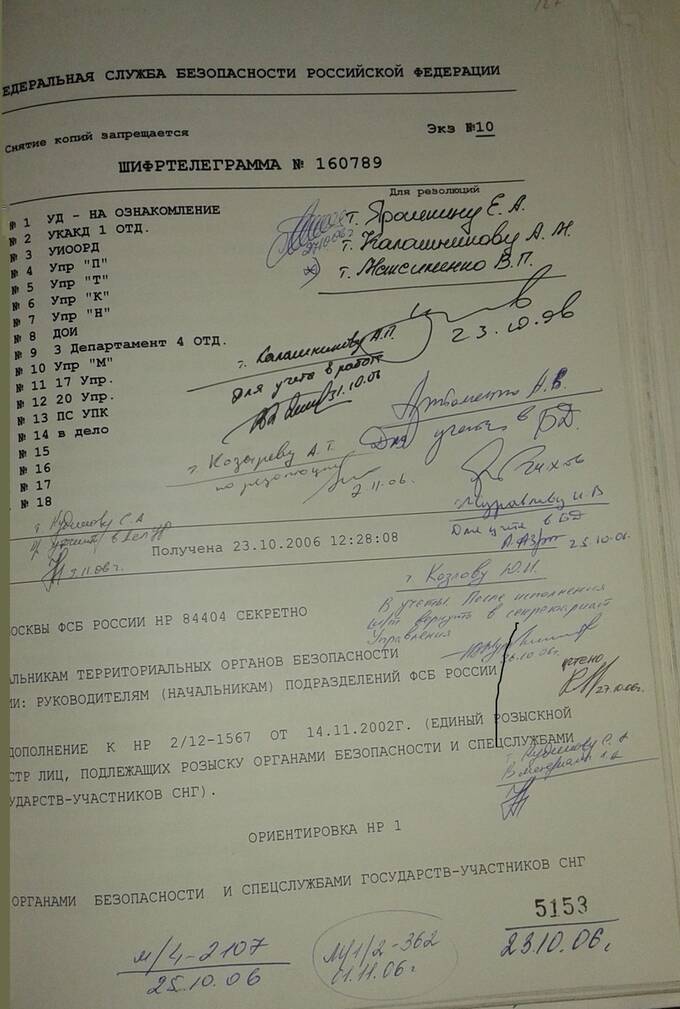 ЕДЕРАЛЬНАЯ СЛУЖБА БЕЗОПАСНОСТИ РОССИЙСКОЙ ФЕДЕРАЦИИ
Снятие копий запрещается
Экз №10
ШИФРТЕЛЕГРАММА № 160789
Для резолюций
№ 1 УД - НА ОЗНАКОМЛЕНИЕ
№ 2 УКАКД 1 ОТД.
№ 3 УИООРД
№ 4 Упр "П"
№ 5 Упр "Т"
№ 6 Упр "К"
№ 7 Упр "Н"
№ 8 ДОИ
№ 9 3 Департамент 4 ОТД.
№ 10 Упр "М"
№ 11 17 Упр.
№ 12 20 Упр.
№ 13 ПС УПК
№ 14 в дело
№ 15
№ 16
№ 17
№ 18
т. Е. А.
т. Калашникову А. М.
т. Максименко В. П.
23.10.06
т. Калашникову А. П.
Для учета в работе
31.10.06
А. В.
Для учета в БД.
т. Козыреву А. Т.
по резолюции
2.11.06.
И. В
Для учета в БД
25.10.06.
т. Кудинову С. А
3.11.06г.
Получена 23.10.2006 12:28:08
т. Козлову Ю. И.
В учеты. После исполнения
ш/т вернуть в секретариат
Управления
26.10.06г.
учтено
27.10.06г.
ОСКВЫ ФСБ РОССИИ НР 84404 СЕКРЕТНО
АЛЬНИКАМ ТЕРРИТОРИАЛЬНЫХ ОРГАНОВ БЕЗОПАСНОСТИ
ИИ: РУКОВОДИТЕЛЯМ (НАЧАЛЬНИКАМ) ПОДРАЗДЕЛЕНИЙ ФСБ РОССИИ
ДОПОЛНЕНИЕ К НР 2/12-1567 ОТ 14.11.2002Г. (ЕДИНЫЙ РОЗЫСКНОЙ
СТР ЛИЦ, ПОДЛЕЖАЩИХ РОЗЫСКУ ОРГАНАМИ БЕЗОПАСНОСТИ И СПЕЦСЛУЖБАМИ
УДАРСТВ-УЧАСТНИКОВ СНГ).
т. Кудинову С. А
ОРИЕНТИРОВКА НР 1
ОРГАНАМИ БЕЗОПАСНОСТИ И СПЕЦСЛУЖБАМИ ГОСУДАРСТВ-УЧАСТНИКОВ СНГ
5153
23.10.06г.
м/4-2107
25.10.06
М/1/2-362
01.11.06г.